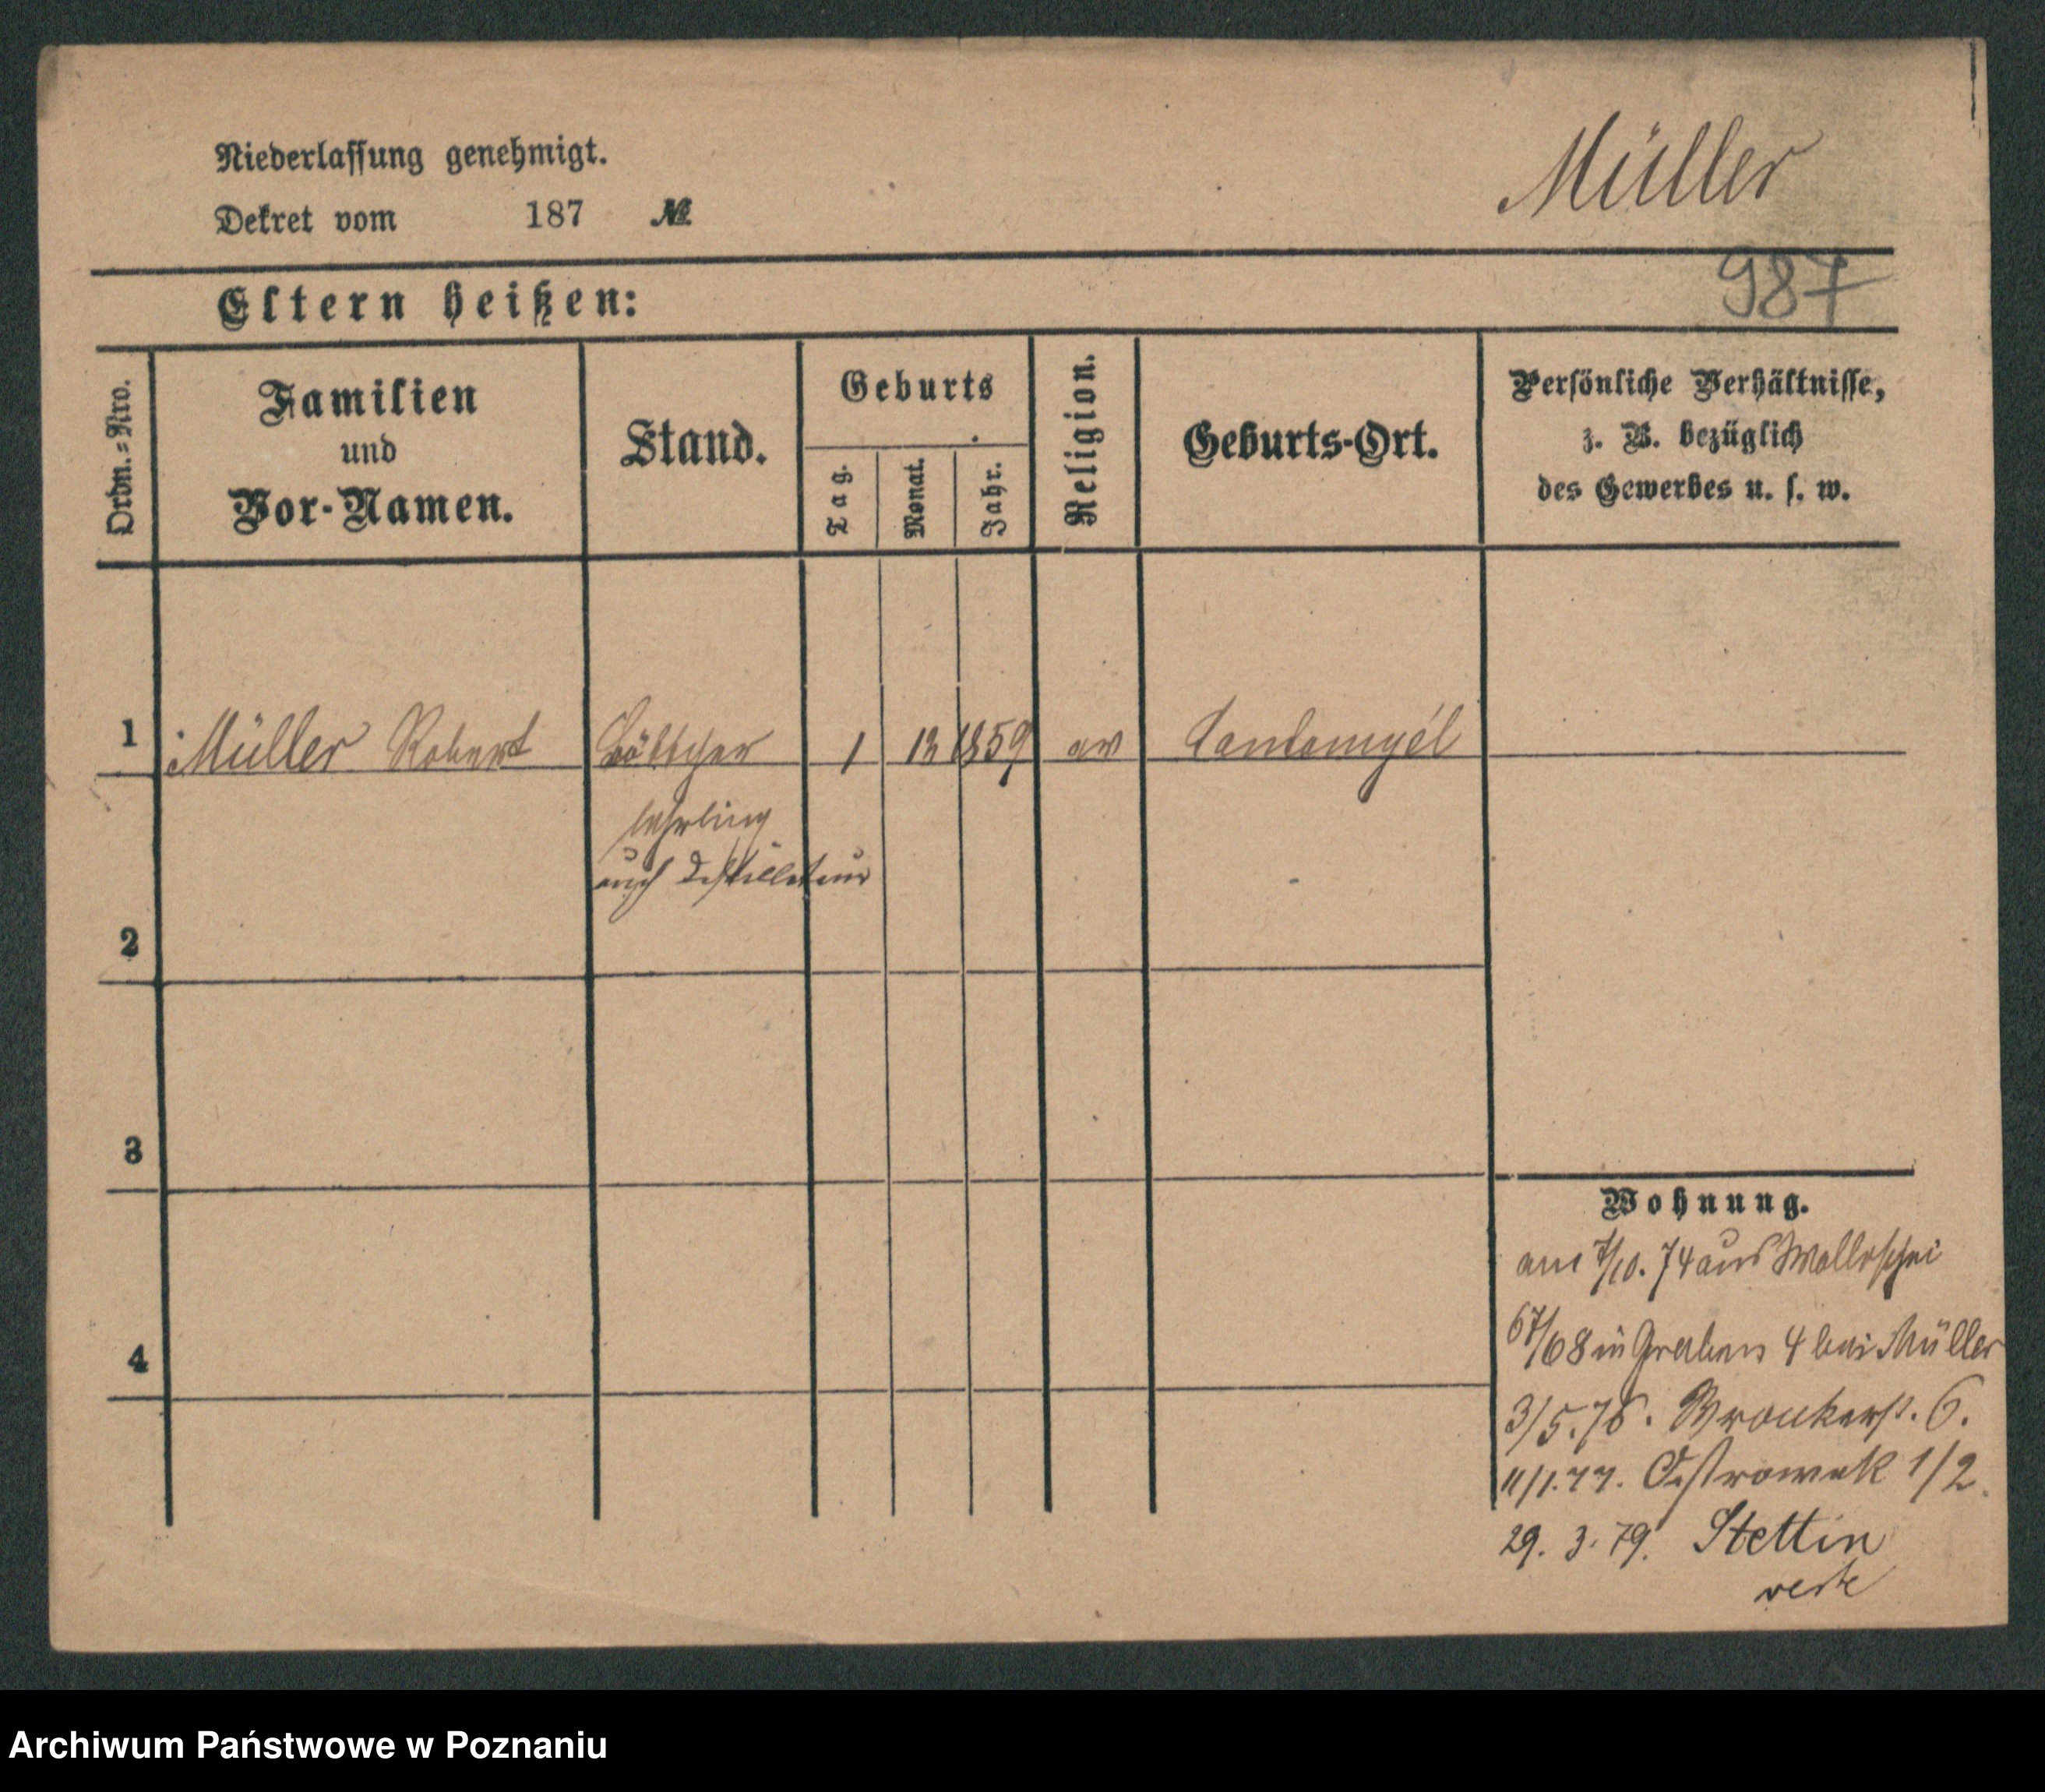 Niederlassung genehmigt.
Müller
Dekret vom 187 №
987
Eltern heißen:
Ordn.-Nro.
Familien
und
Vor-Namen.
Stand.
Geburts
Tag.
Monat.
Jahr.
Religion.
Geburts-Ort.
Persönliche Verhältnisse,
z. B. bezüglich
des Gewerbes u. s. w.
1 Müller Robert Böttcher 1 12 1859 ev
lehrling
auch Destillateur
2
3
4
Wohnung.
am 7/10. 74 aus
67/68 in Graben 4 bei Müller
3/5. 76. Wronkerst. 6.
11/1. 77. Ostrowek 1/2.
29. 3. 79. Stettin
Archiwum Państwowe w Poznaniu